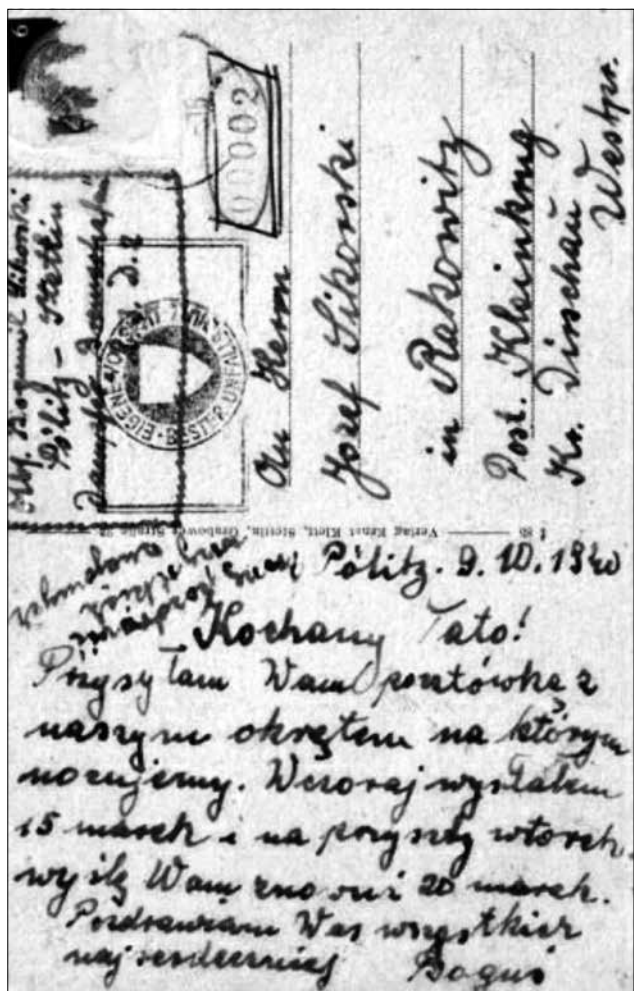 6
Abs. Bogumił Sikorski
Pölitz – Stettin
Dampfer
000002
An Herrn
Józef Sikorski
in Rakowitz
Post. Kleinkrug
Kr. Dirschau
Westpr.
Verlag Ernst Klett, Stettin, Grabower Straße
Pölitz. 9.10.1940
Kochany Tato!
Przysyłam Wam pocztówkę z
naszym okrętem na którym
nocujemy. Wczoraj wysłałem
15 marek i na przyszły wtorek
wyślę Wam znowu 20 marek.
Pozdrawiam Was wszystkich
najserdeczniej Boguś